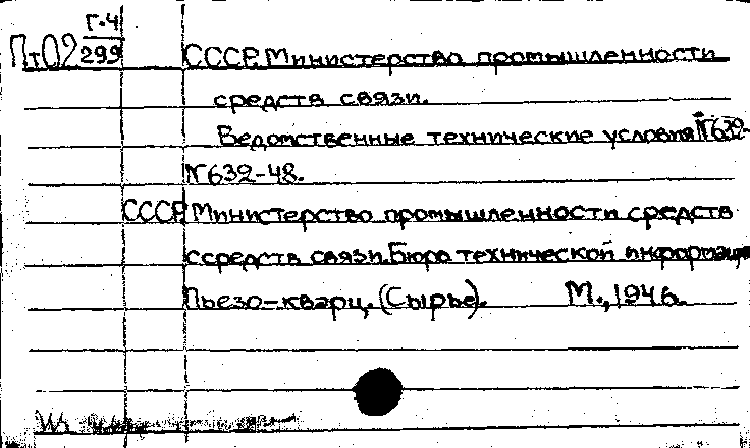 Пт02 Г-4
299
СССР. Министерство промышленности
средств связи.
Ведомственные технические условия N639-
N639-48.
СССР. Министерство промышленности средств
ссредств связи. Бюро технической информации
Пьезо-кварц. (Сырье). М., 1946.